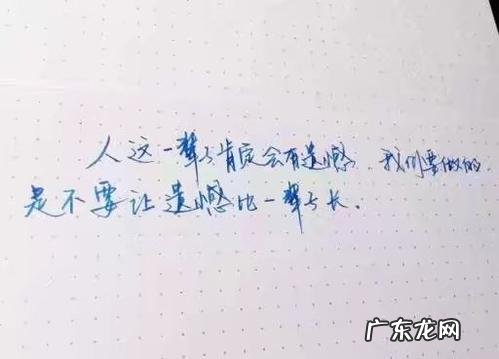 人这一辈子肯定会有遗憾，我们要做的
是不要让遗憾比一辈子长.
广东龙网